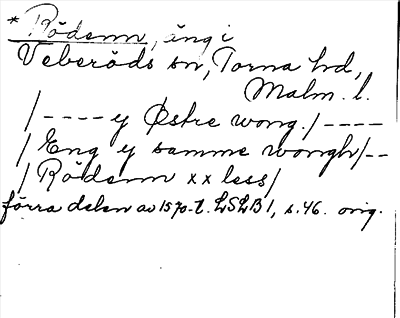 * Rödenn, äng i
Veberöds sn, Torna hd,
Malm. l.
/---- y Østre wong./----
/Eng y samme wongh/--
/Rödenn x x less/
förra delen av 1570-t. LSLB 1, s. 46. orig.